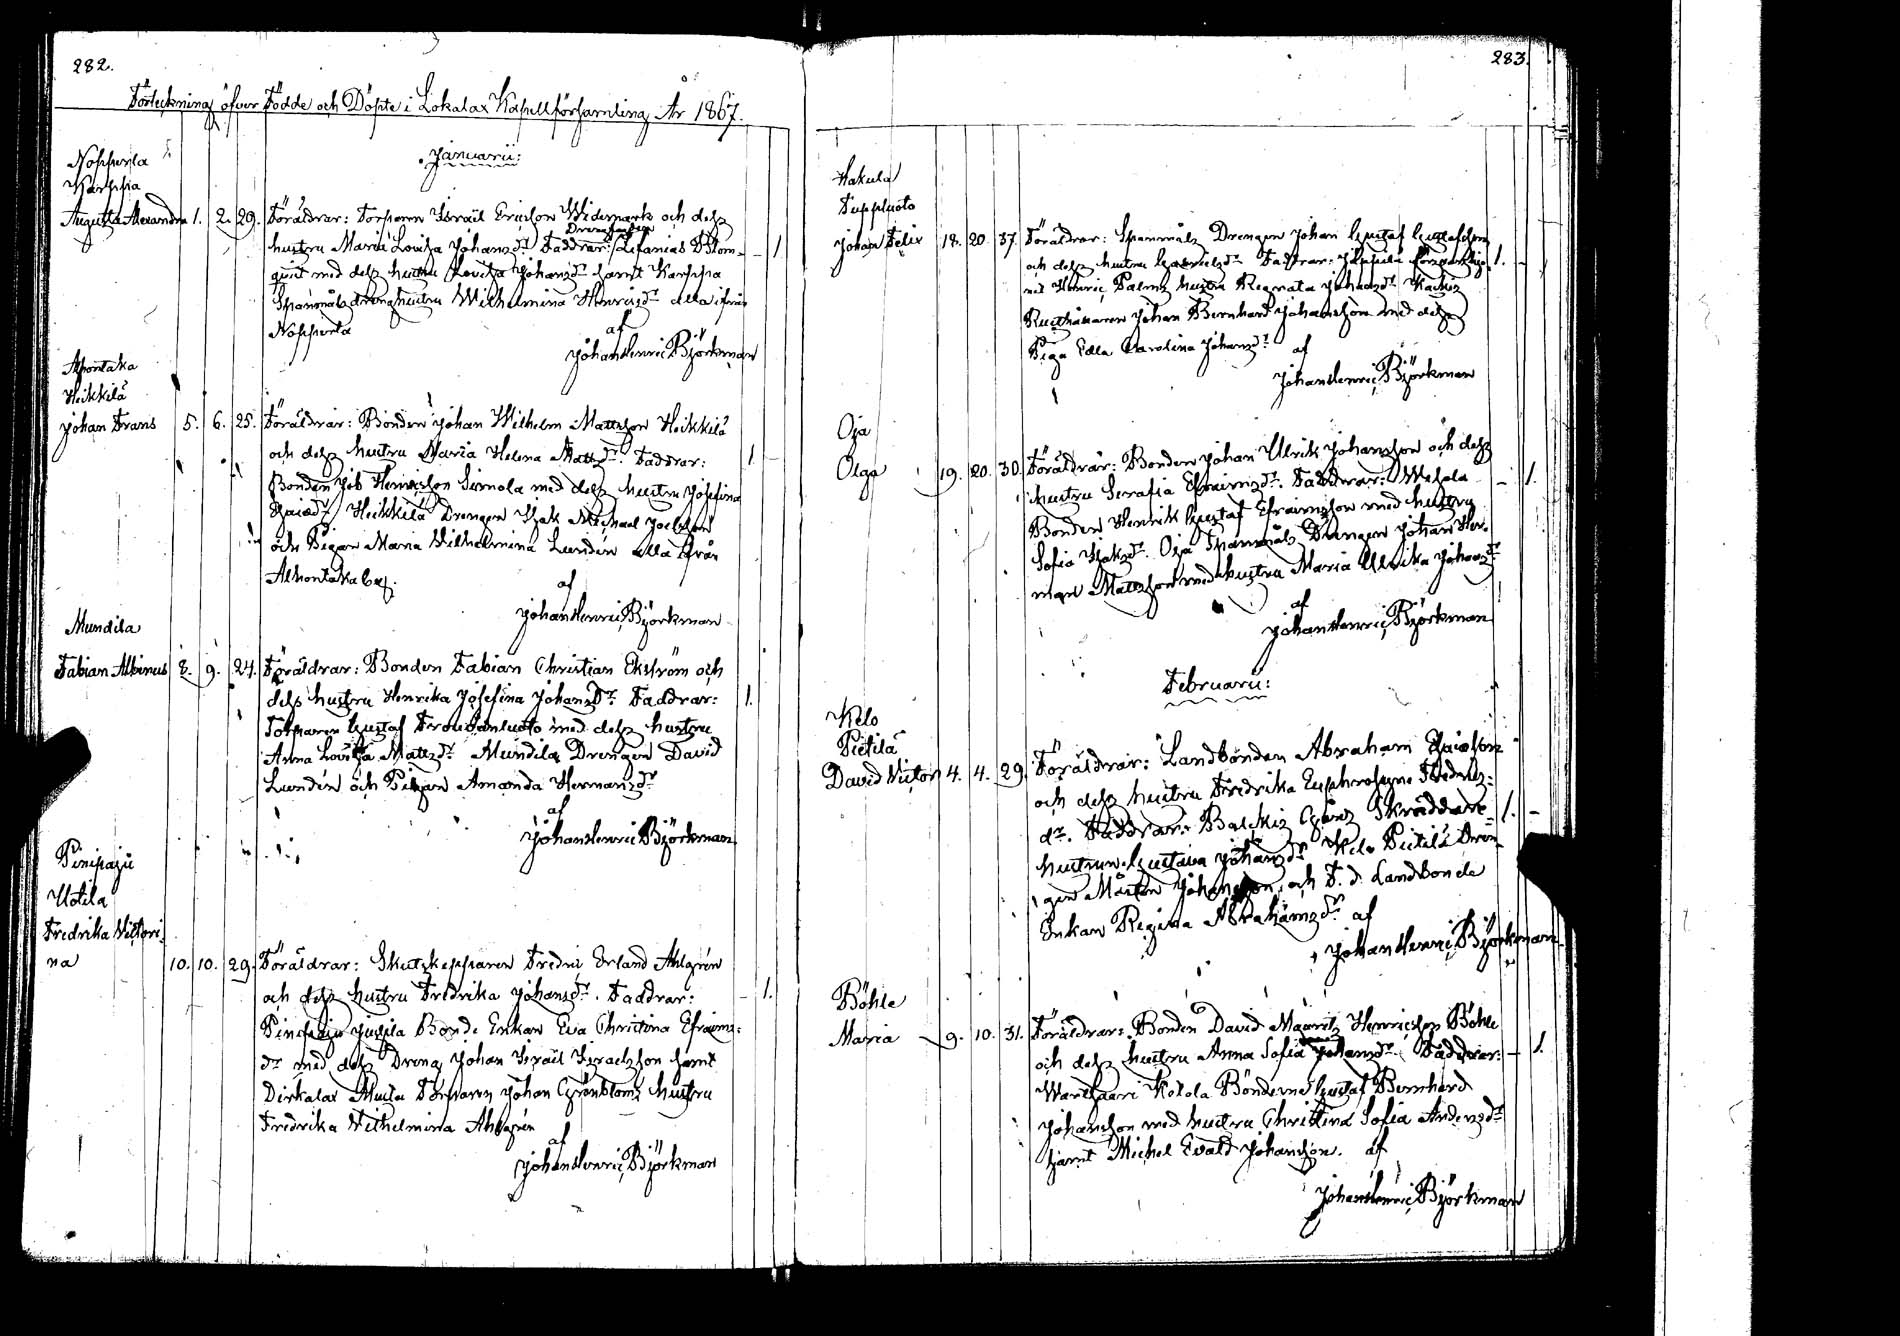 282.
Förteckning öfver Födde och Döpte i Lokalax Kapellförsamling År 1867.
Januarii:
Nopperla
Karppa
Augusta Alexandra 1. 2. 29. Föräldrar: Torparen Israel Ericsson Widemark och dess
Drengkarlen
hustru Maria Lovisa Johansdr. Faddrar: Zefanias Blom- 1
quist med dess hustru Lovisa Johansdr samt Karppa
Spanmålsdreng hustru Wilhelmina Henricsdr alla ifrån
Nopperla
af
Johan Henric Björkman
Alhontaka
Heikkilä
Johan Frans 5. 6. 25. Föräldrar: Bonden Johan Wilhelm Mattsson Heikkilä
och dess hustru Maria Helena Mattsdr. Faddrar: 1
Bonden Job Henricsson Simola med dess hustru Josefina
Esaiædr, Heikkilä Drengen Isak Michael Joelsson
och Pigan Maria Wilhelmina Lundén alla ifrån
Alhontaka by.
af
Johan Henric Björkman
Mundila
Fabian Albinus 8. 9. 24. Föräldrar: Bonden Fabian Christian Ekström och
dess hustru Henrika Josefina Johansdr Faddrar: 1.
Torparen Gustaf med dess hustru
Anna Lovisa Mattsdr Mundila Drengen David
Lundén och Pigan Amanda Hermansdr
af
Johan Henric Björkman
Pinipaju
Uotila
Fredrika Victori-
na 10. 10. 29. Föräldrar: Skutskepparen Fredric Erland Ahlgrén
och dess hustru Fredrika Johansdr. Faddrar: 1.
Pinipaju Jussila Bonde Enkan Eva Christina Efraims-
dr med dess Dreng Johan Israel Israelsson samt
Dirkalax Torparen Johan Grönbloms hustru
Fredrika Wilhelmina Ahlgrén
af
Johan Henric Björkman
283.
Hakula
Suppluoto
Johan Felix 18. 20. 37. Föräldrar: Spanmåls Drengen Johan Gustaf Gustafsson
och dess hustru Gabrielsdr Faddrar: 1.
Henric Palms hustru Regnata Johansdr
Rusthållaren Johan Bernhard Johansson med dess
Piga Edla Carolina Johansdr
af
Johan Henric Björkman
Oja
Olga 19. 20. 30. Föräldrar: Bonden Johan Ulrik Johansson och dess
hustru Serafia Efraimsdr. Faddrar: 1.
Bonden Henrik Gustaf Efraimsson med hustru
Sofia Isaksdr. Oja Spanmåls Drengen Johan Her-
man Mattsson med hustru Maria Ulrika Johansdr
af
Johan Henric Björkman
Februarii:
Kelo
Pietilä
David Victor 4. 4. 29. Föräldrar: Landbonden Abraham Esaiæsson
och dess hustru Fredrika Euphrosyne Fredrics-
dr. Faddrar: Skräddare- 1.
hustrun Gustava Johansdr Kelo Pietilä Dren-
gen Mårten Johansson och F. d. Landbonde
Enkan Regina Abrahamsdr af
Johan Henric Björkman
Böhle
Maria 9. 10. 31. Föräldrar: Bonden David Mauritz Henricsson Böhle
och dess hustru Anna Sofia Johansdr. Faddrar: 1.
Kokola Bönderne Gustaf Bernhard
Johansson med hustru Christina Sofia Andersdr
samt Michel Evald Johansson. af
Johan Henric Björkman